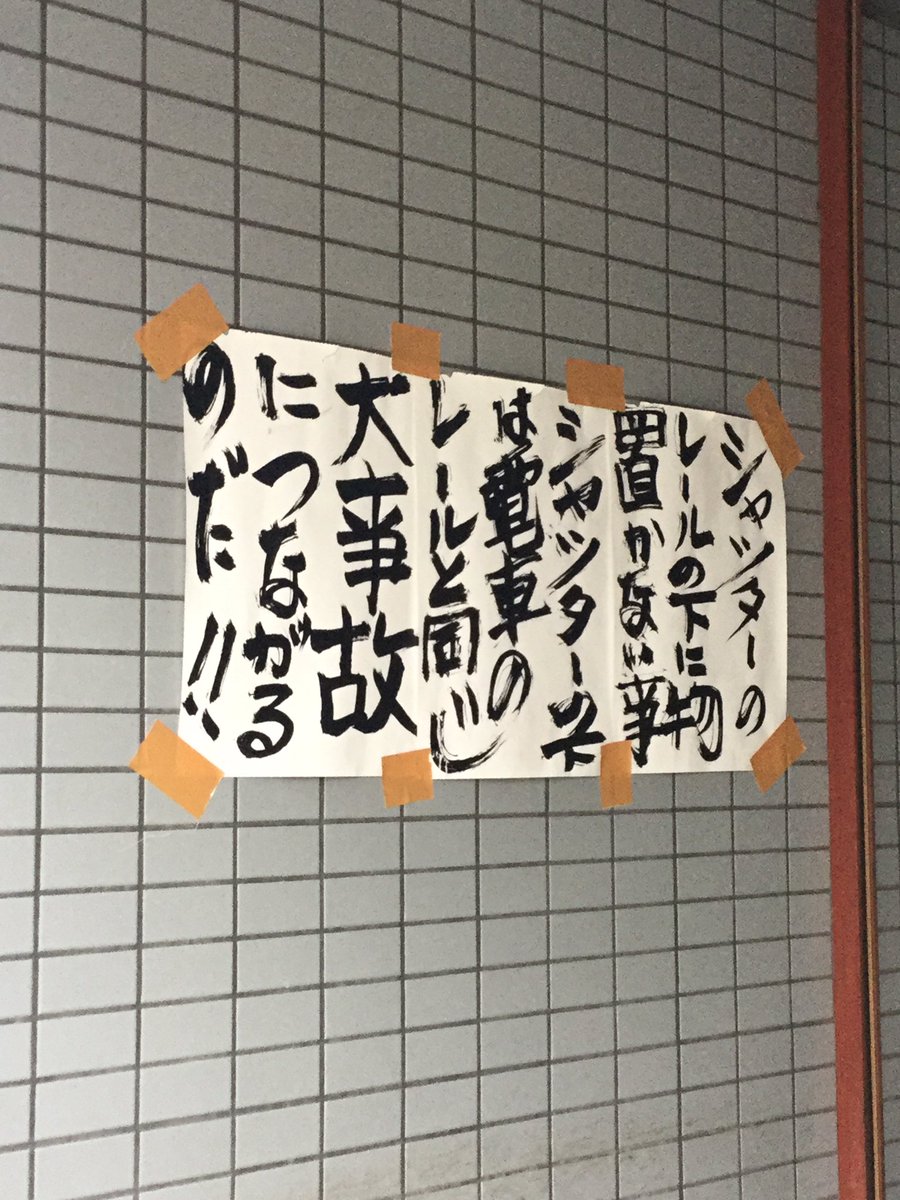 シャッターの
レールの下に物
置かない事
シャッターの下
は電車の
レールと同じ
大事故
につながる
のだ!!